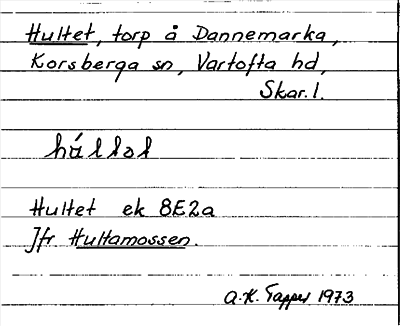 Hultet, torp å Dannemarka,
Korsberga sn, Vartofta hd,
Skar. l.
húllət
Hultet ek 8E2a
Jfr Hultamossen.
A.K. Tapper 1973